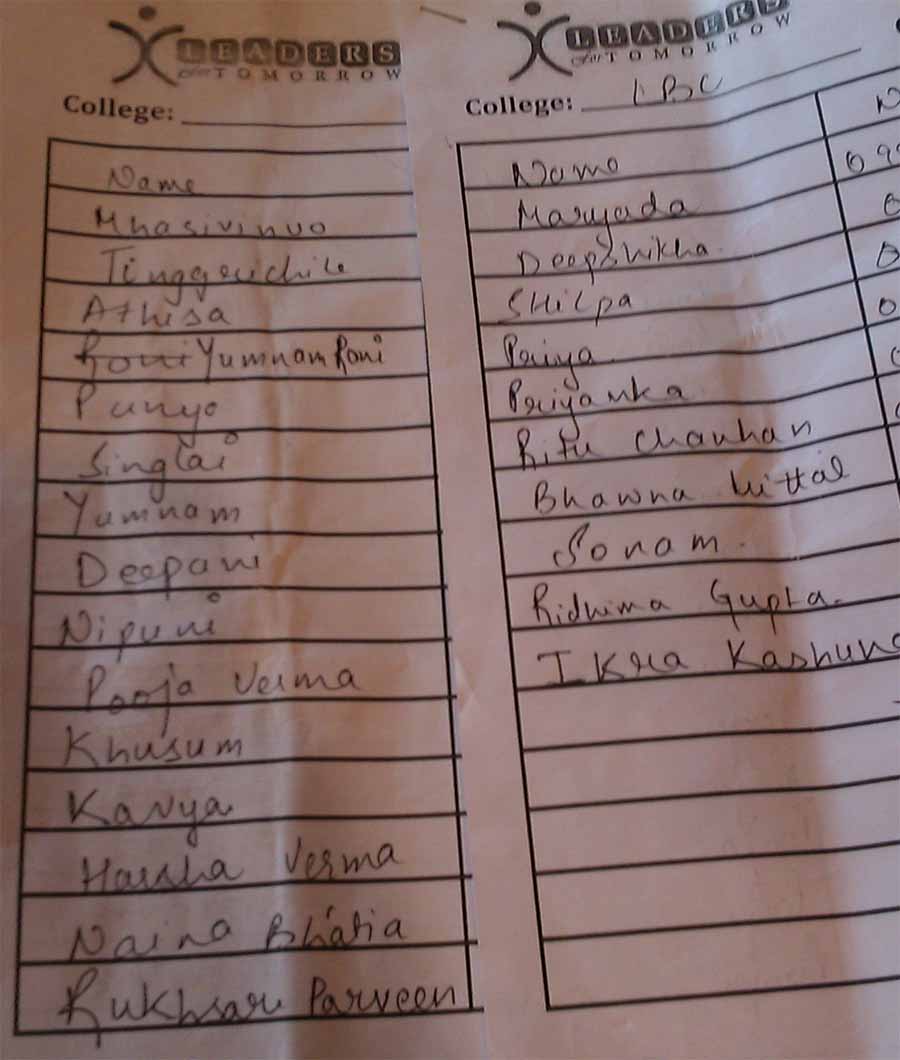 LEADERS
for TOMORROW
College:
Name
Mhasivinuo
Athisa
Roni Yumnam Roni
Punyo
Singlai
Yumnam
Deepani
Nipuni
Pooja Verma
Khusum
Kavya
Harsha Verma
Naina Bhatia
Rukhsar Parveen
LEADERS
for TOMORROW
College: LBC
Name
Maryada
Deepshikha
SHilpa
Priya
Priyanka
Ritu Chauhan
Bhawna Mittal
Sonam.
Ridhima Gupta.
Ikra